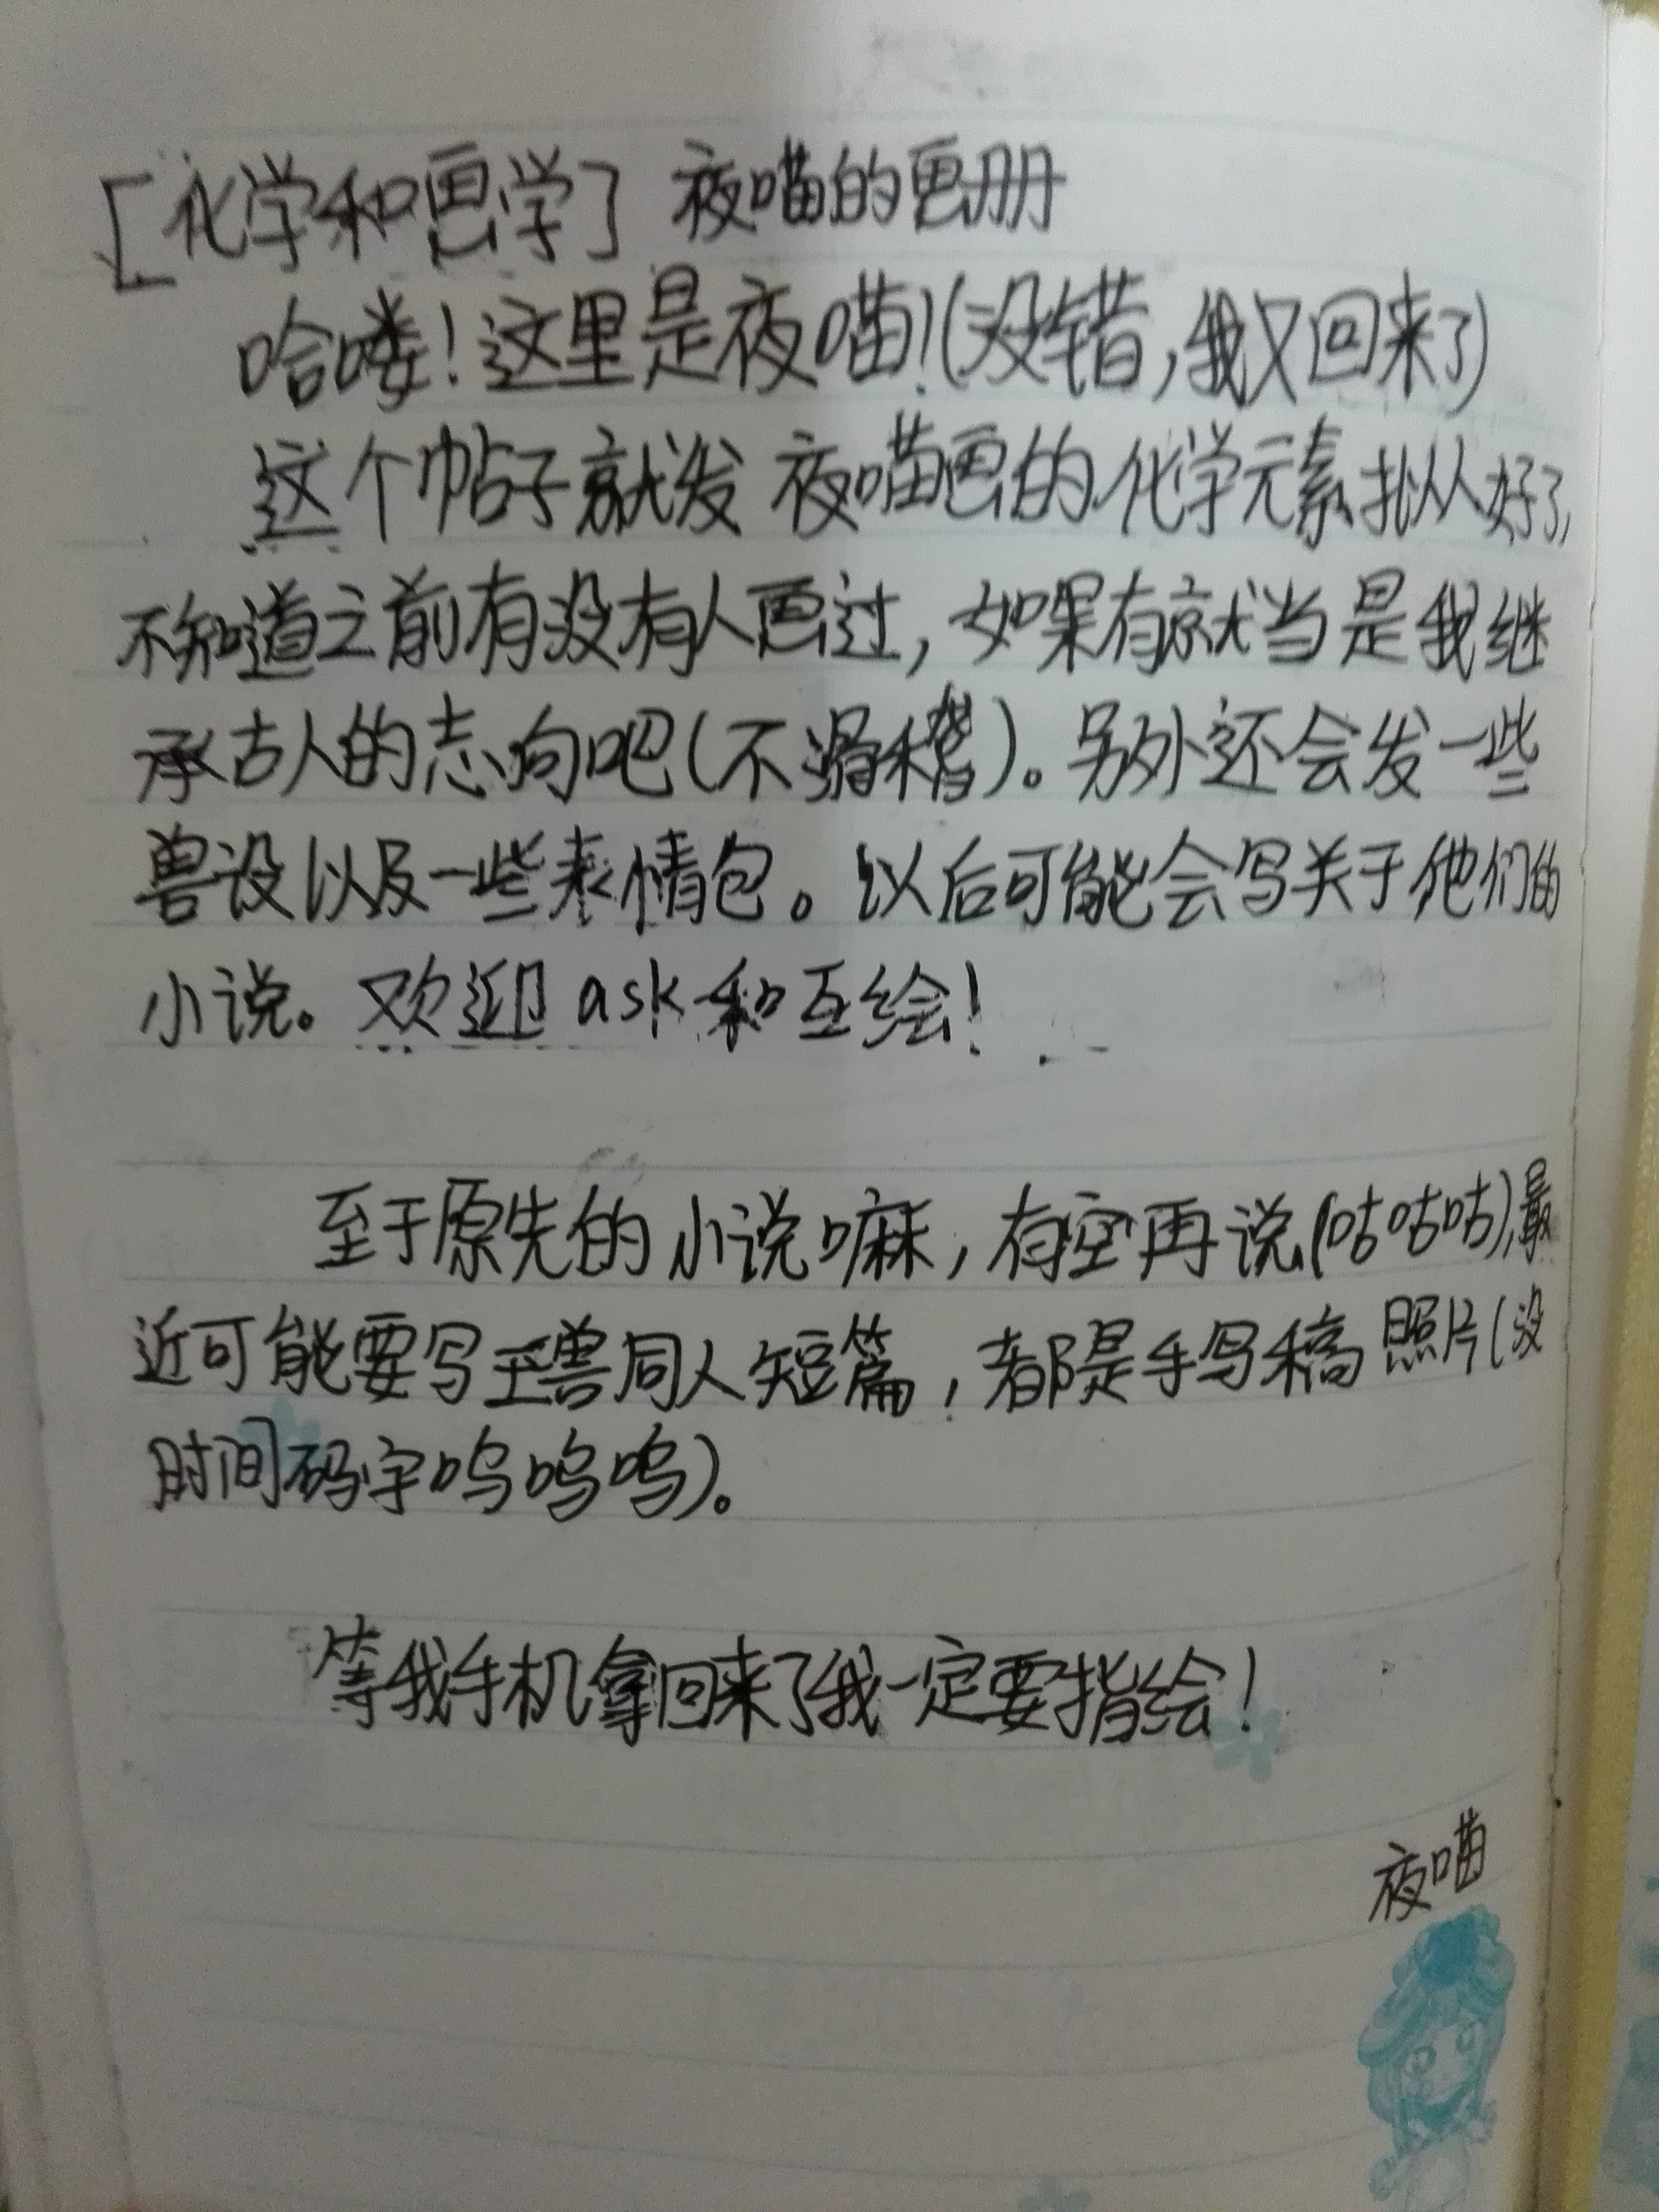 [化学和画学] 夜喵的画册
哈喽!这里是夜喵!(没错,我又回来了)
这个帖子就发夜喵画的化学元素拟人好了,
不知道之前有没有人画过,如果有就当是我继
承古人的志向吧(不滑稽)。另外还会发一些
兽设以及一些表情包。以后可能会写关于他们的
小说。欢迎ask和互绘!
至于原先的小说嘛,有空再说(咕咕咕),最
近可能要写王兽同人短篇,都是手写稿照片(没
时间码字呜呜呜)。
等我手机拿回来了我一定要指绘!
夜喵